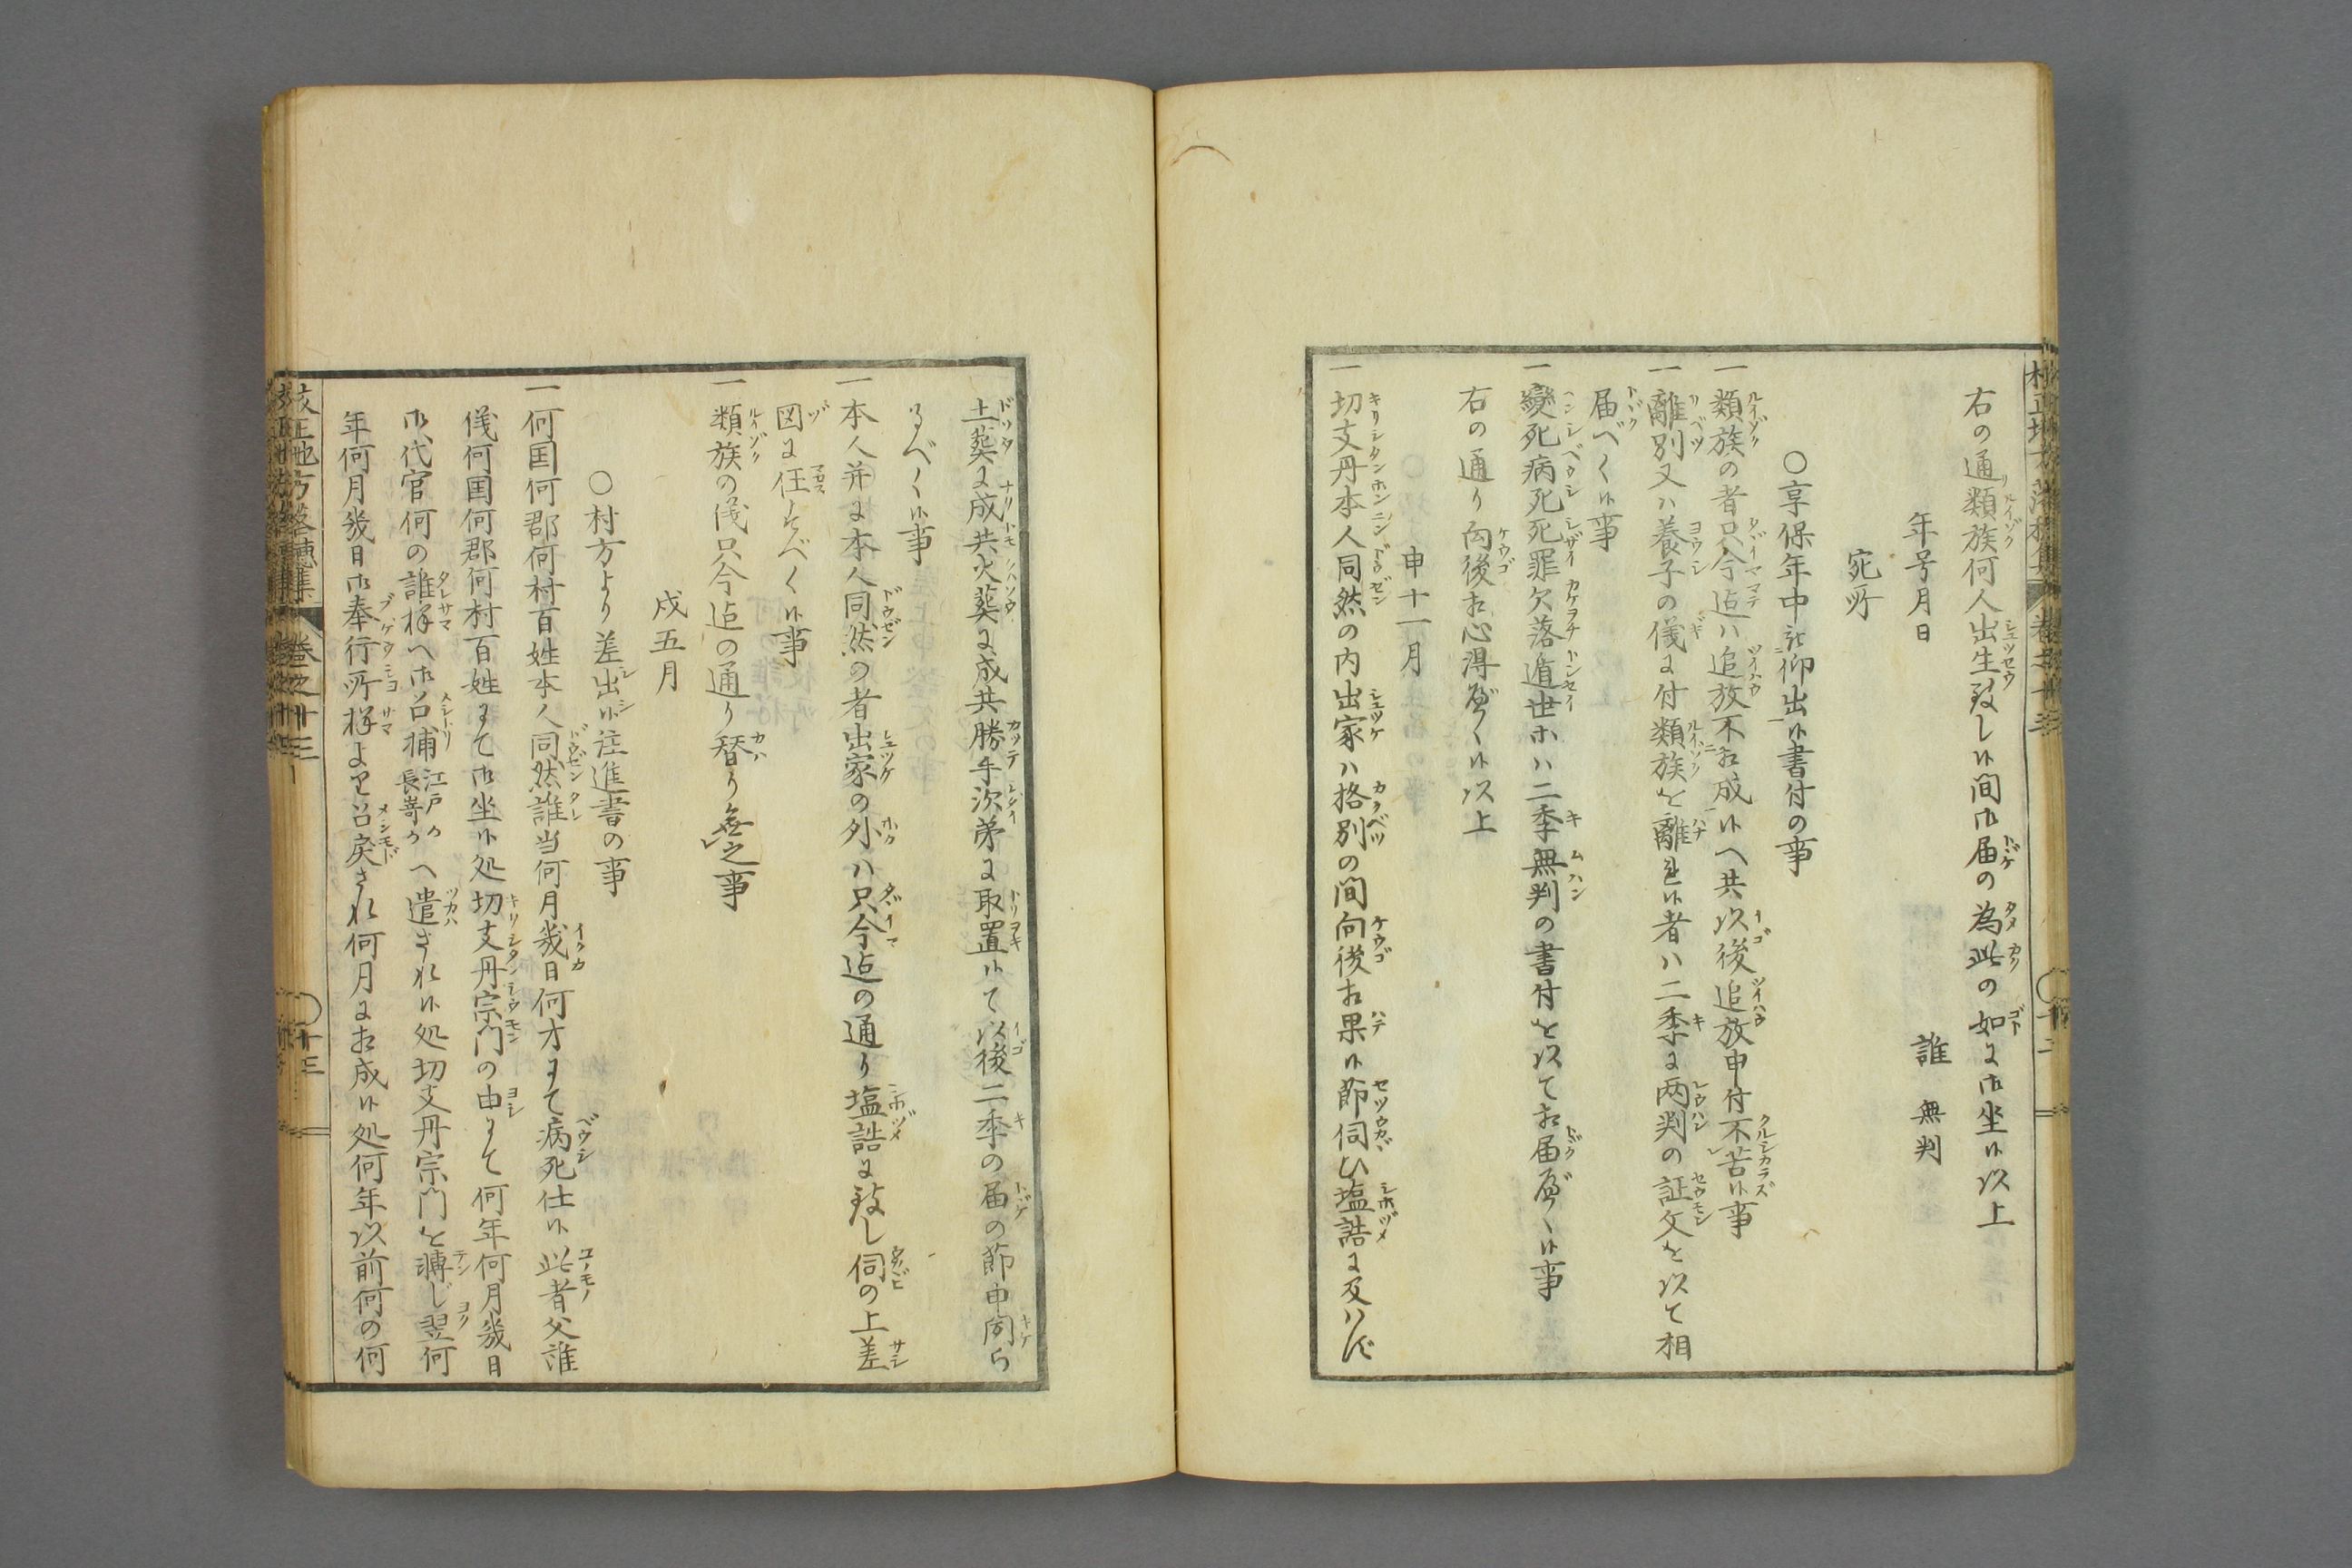 右の通類族何人出生致し候間御届の為此の如に御坐候以上
年号月日　誰　無判
宛所
○享保年中被仰出候書付の事
一類族の者只今迠ハ追放不相成候へ共以後追放申付不苦候事
一離別又ハ養子の儀に付類族を離れ候者ハ二季に両判の証文を以て相
届べく候事
一變死病死死罪欠落遁世等ハ二季無判の書付を以て相届べく候事
右の通り向後相心得べく候以上
申十一月
一切支丹本人同然の内出家ハ格別の間向後相果候節伺ひ塩詰に及ハず
土葬に成共火葬に成共勝手次第に取置候て以後二季の届の節申聞ら
るべく候事
一本人并に本人同然の者出家の外ハ只今迠の通り塩詰に致し伺の上差
図に任すべく候事
一類族の儀只今迠の通り替り無之事
戌五月
○村方より差出候注進書の事
一何国何郡何村百姓本人同然誰当何月幾日何才にて病死仕候此者父誰
儀何国何郡何村百姓にて御坐候処切支丹宗門の由にて何年何月幾日
御代官何の誰様へ御召捕江戸か長嵜かへ遣ざれ候処切支丹宗門を轉じ翌何
年何月幾日御奉行所様より召戻され何月に相成候処何年以前何の何
校正地方落穂集　巻之十三　十三